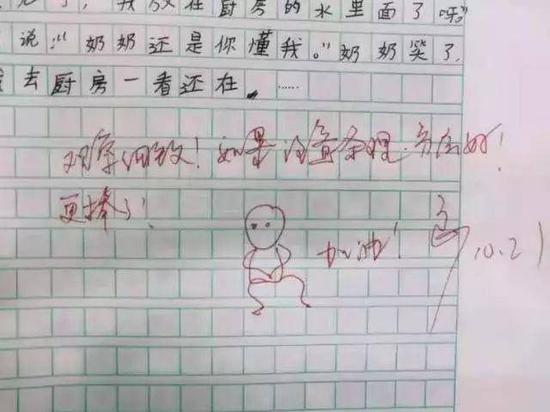 了，"我放在厨房的水里面了呀。"
说："奶奶还是你懂我。"奶奶笑了，
去厨房一看还在。……
观察细致！如果注意条理，分
更棒了！
加油！
10.21